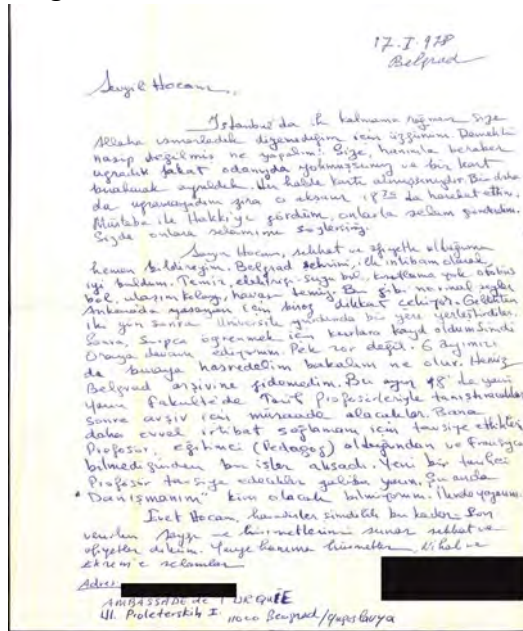 17.I.978
Belgrad
Sevgili Hocam,
İstanbul'da iki kalmama rağmen size
Allaha ısmarladık diyemediğim için üzgünüm. Demekki
nasip değilmiş ne yapalım. Size, hanımla beraber
uğradık fakat odanızda yokmuşsunuz ve bir kart
bırakarak ayrıldık. Her halde kartı almışsınızdır. Bir daha
da uğrayamadım zira o akşam 18 de hareket ettim.
Müsteba ile Hakkı'yı gördüm, onlarla selam gönderdim.
Sizde onlara selamımı söylersiniz.
Sayın Hocam, sıhhat ve afiyette olduğumu
hemen bildireyim. Belgrad şehrini, ilk intibam olarak,
iyi buldum. Temiz, elektriği-suyu bol, kısıtlama yok otobüs
bol, ulaşım kolay, havası temiz. Bu gibi normal şeyler
Ankara'da yaşayan için biraz dikkat çekiyor. Geldikten
iki gün sonra Üniversite yurdunda bir yere yerleştirdiler.
Sonra, Sırpça öğrenmek için kurslara kayd oldum. Şimdi
Oraya devam ediyorum. Pek zor değil. 6 ayımızı
da buraya hasredelim bakalım ne olur. Henüz
Belgrad arşivine gidemedim. Bu ayın 18'de yani
yarın Fakülte'de Tarih Profesörleriyle tanıştıracaklar
sonra arşiv için müsaade alacaklar. Bana
daha evvel irtibat sağlamam için tavsiye ettikleri
Profesör, eğitimci (Pedagog) olduğundan ve Fransızca
bilmediğinden bu işler aksadı. Yeni bir tarihçi
Profesör tavsiye edecekler galiba yarın. Şu anda
"Danışmanım" kim olacak bilmiyorum. İlerde yazarım.
Evet Hocam, havadisler şimdilik bu kadar. Son
verirken saygı ve hürmetlerimi sunar sıhhat ve
afiyetler dilerim. Yenge hanıma hürmetler, Nihal ve
Ekrem'e selamlar
Adres:
AMBASSADE de TURQUIE
Ul. Proleterskih I. 11000 Beograd/Yugoslavya